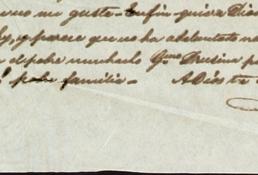 me guste. En fin quiera Dios
y, y parece que no ha adelantado na
pobre muchacho Gmo Drusina p
pobre familia – A Dios te